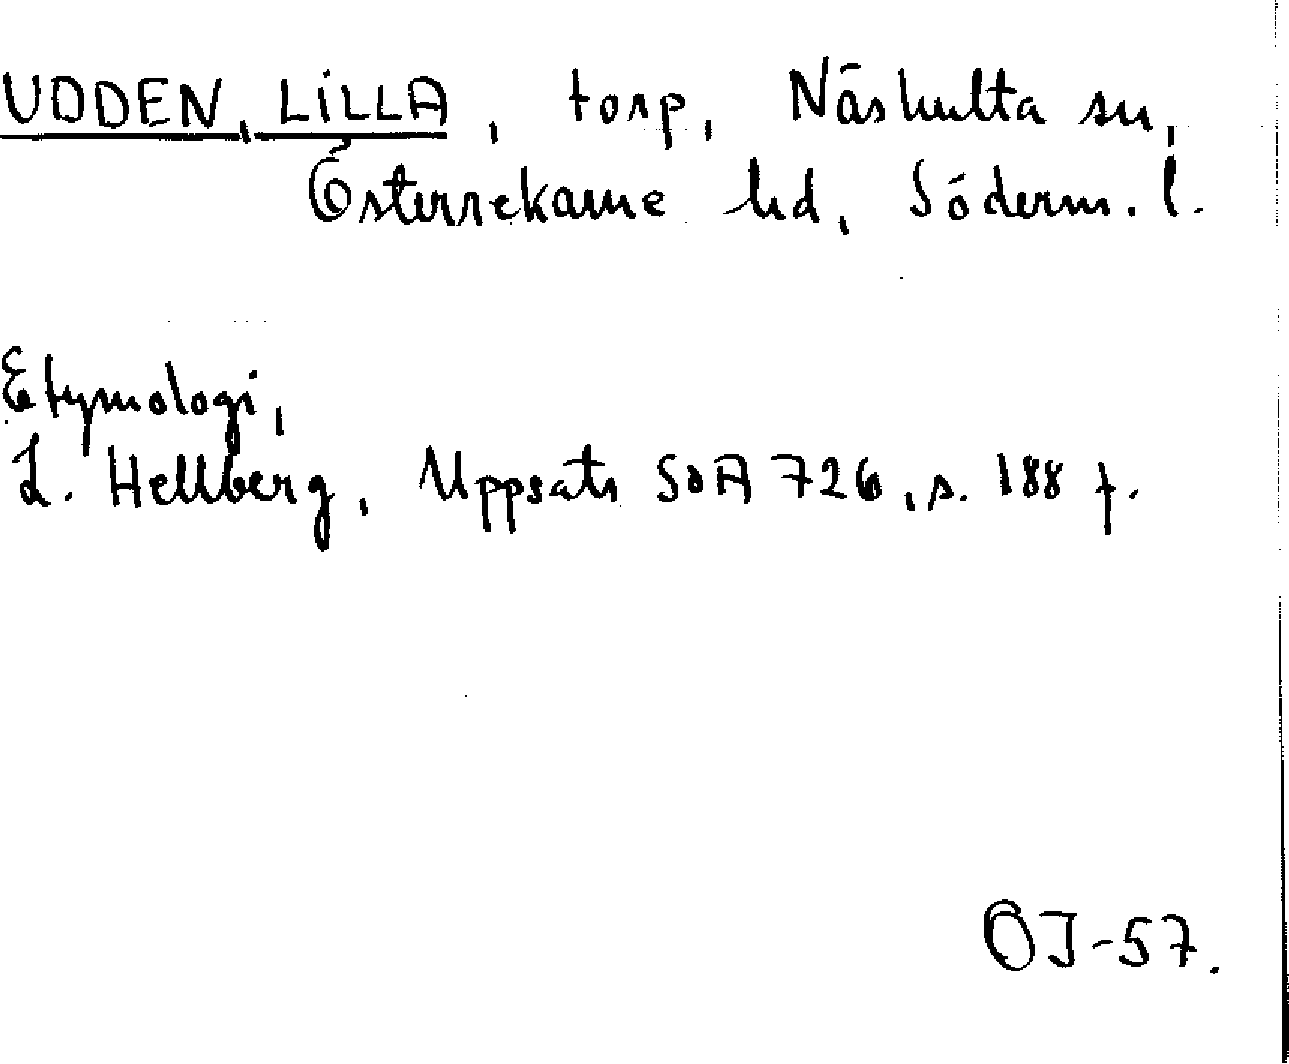 UDDEN, LILLA, torp, Näshulta sn,
Österrekarne hd, Söderm. l.
Etymologi,
L. Hellberg, Uppsats SOA 726, s. 188 f.
ÖJ-57.